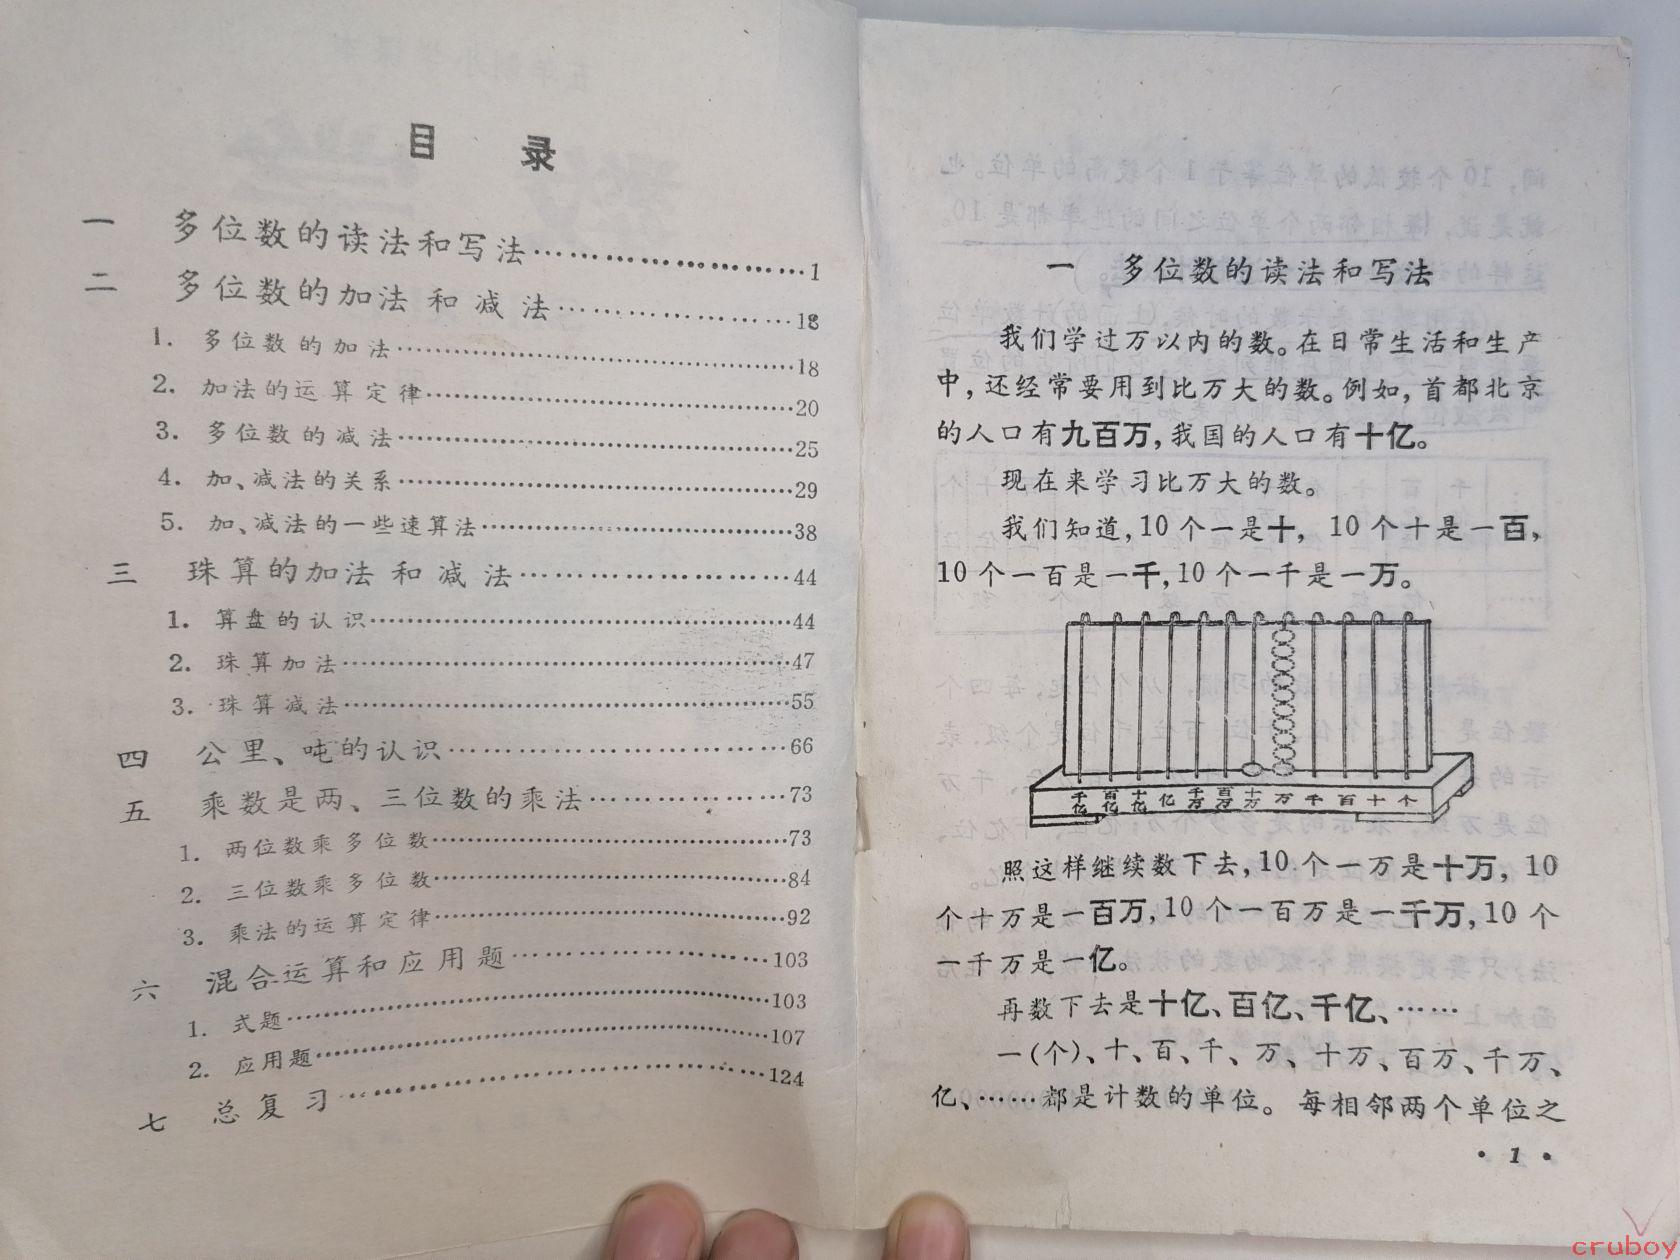 目 录
一 多位数的读法和写法……………………1
二 多位数的加法和减法……………………18
1. 多位数的加法……………………18
2. 加法的运算定律……………………20
3. 多位数的减法……………………25
4. 加、减法的关系……………………29
5. 加、减法的一些速算法……………………38
三 珠算的加法和减法……………………44
1. 算盘的认识……………………44
2. 珠算加法……………………47
3. 珠算减法……………………55
四 公里、吨的认识……………………66
五 乘数是两、三位数的乘法……………………73
1. 两位数乘多位数……………………73
2. 三位数乘多位数……………………84
3. 乘法的运算定律……………………92
六 混合运算和应用题……………………103
1. 式题……………………103
2. 应用题……………………107
七 总复习……………………124
一 多位数的读法和写法
我们学过万以内的数。在日常生活和生产
中,还经常要用到比万大的数。例如,首都北京
的人口有九百万,我国的人口有十亿。
现在来学习比万大的数。
我们知道,10个一是十, 10个十是一百,
10个一百是一千,10个一千是一万。
千亿 百亿 十亿 亿 千万 百万 十万 万 千 百 十 个
照这样继续数下去,10个一万是十万, 10
个十万是一百万,10个一百万是一千万,10个
一千万是一亿。
再数下去是十亿、百亿、千亿、……
一(个)、十、百、千、万、十万、百万、千万、
亿、……都是计数的单位。每相邻两个单位之
• 1 •
cruboy